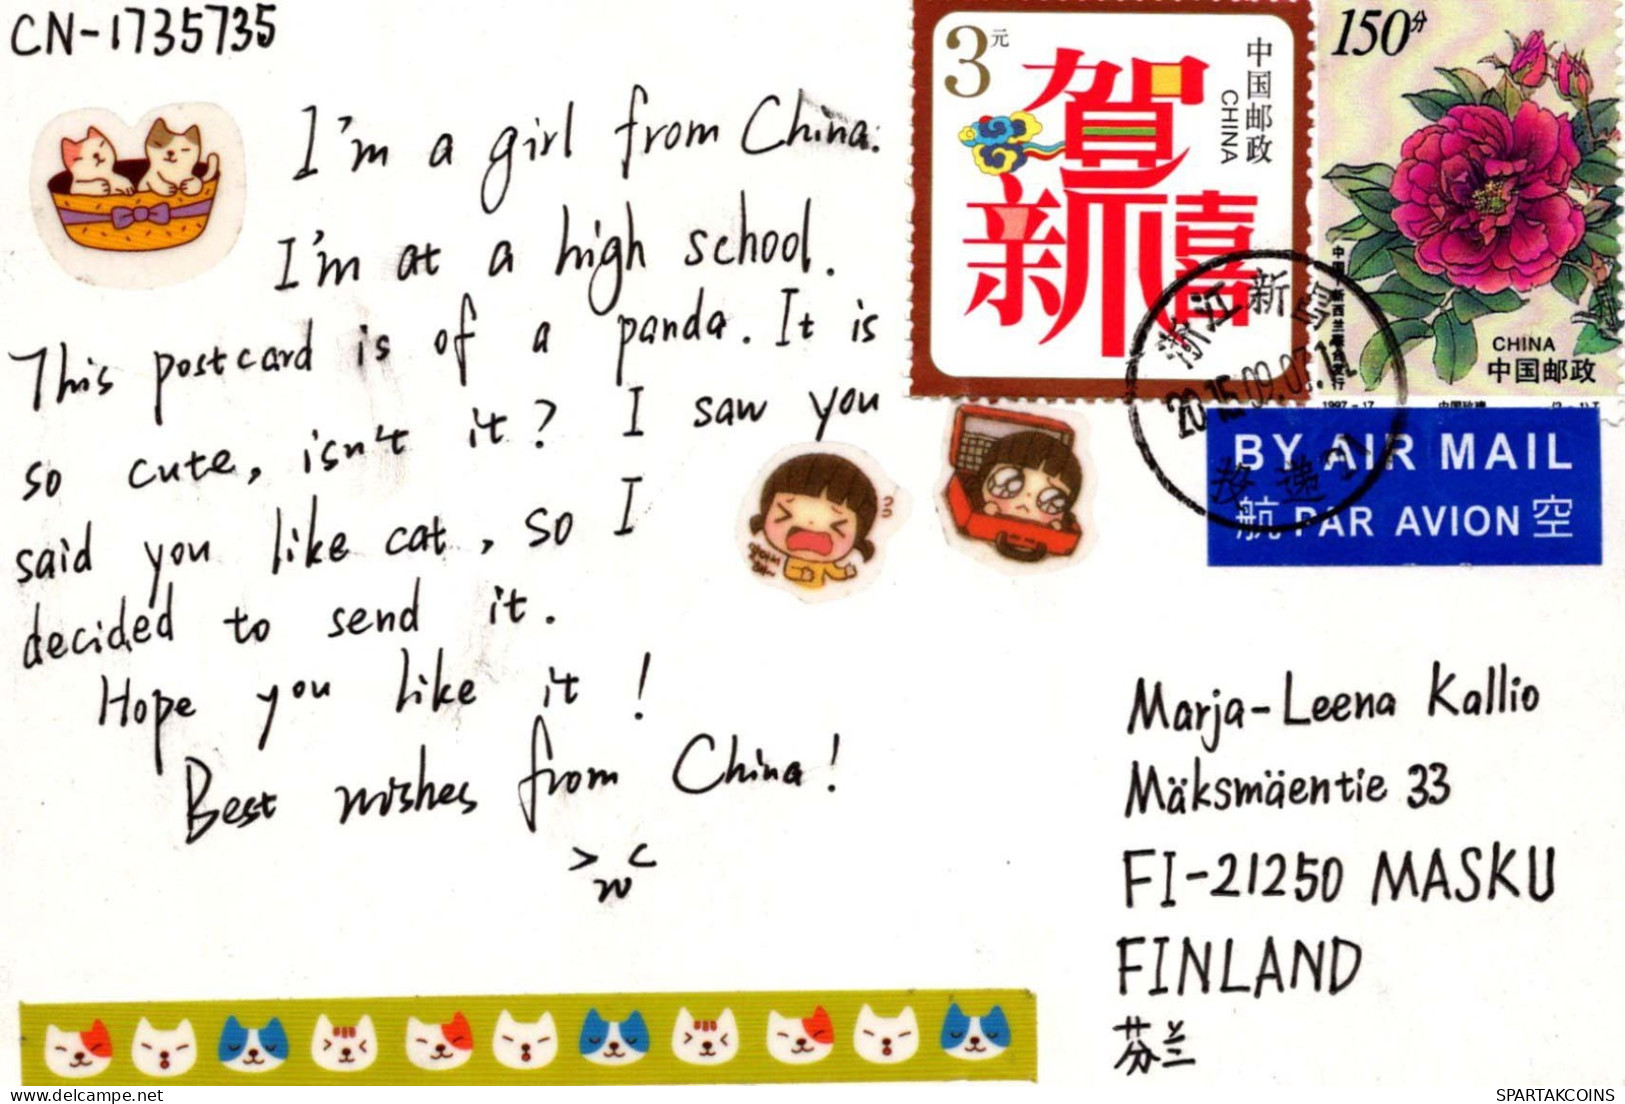 CN-1735735
I'm a girl from China.
I'm at a high school.
This postcard is of a panda. It is
so cute, isn't it? I saw you
said you like cat, so I
decided to send it.
Hope you like it!
Best wishes from China!
>w<
3元
贺新禧
中国邮政
CHINA
150分
中国-新西兰联合发行
CHINA
中国邮政
1997-17
中国玫瑰
(2-1)T
浙江 新
2015.09.07.1
BY AIR MAIL
航 PAR AVION 空
Marja-Leena Kallio
Mäksmäentie 33
FI-21250 MASKU
FINLAND
芬兰
SPARTAKCOINS